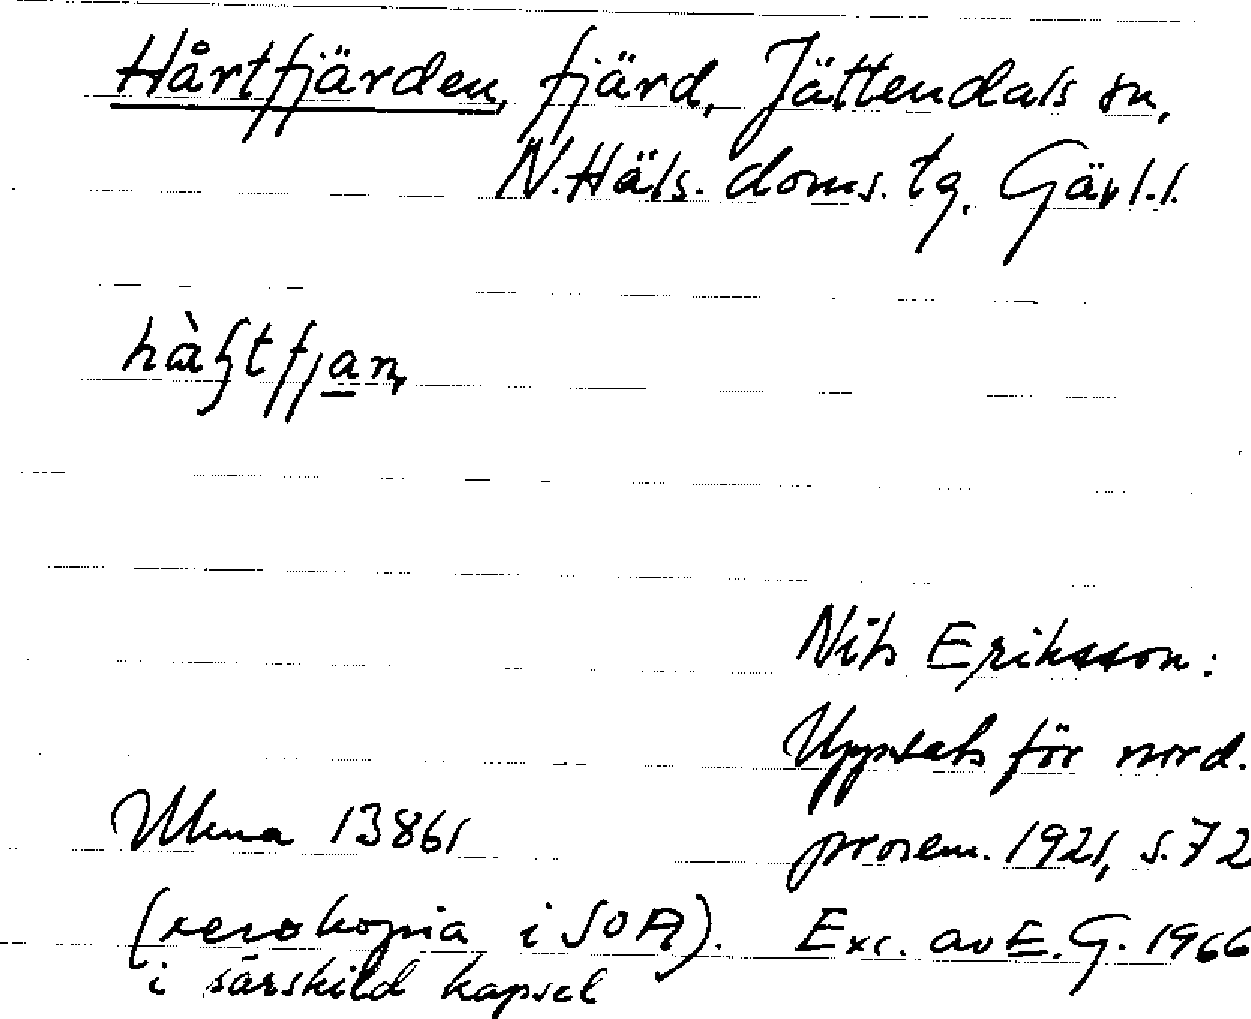 Hårtfjärden, fjärd, Jättendals sn,
N. Häls. doms. tg. Gävl.l.
Nils Eriksson:
Uppsats för nord.
prosem. 1921, s. 72
Ulma 13861
(xerokopia i SOA).
i särskild kapsel
Exc. av E. G. 1966